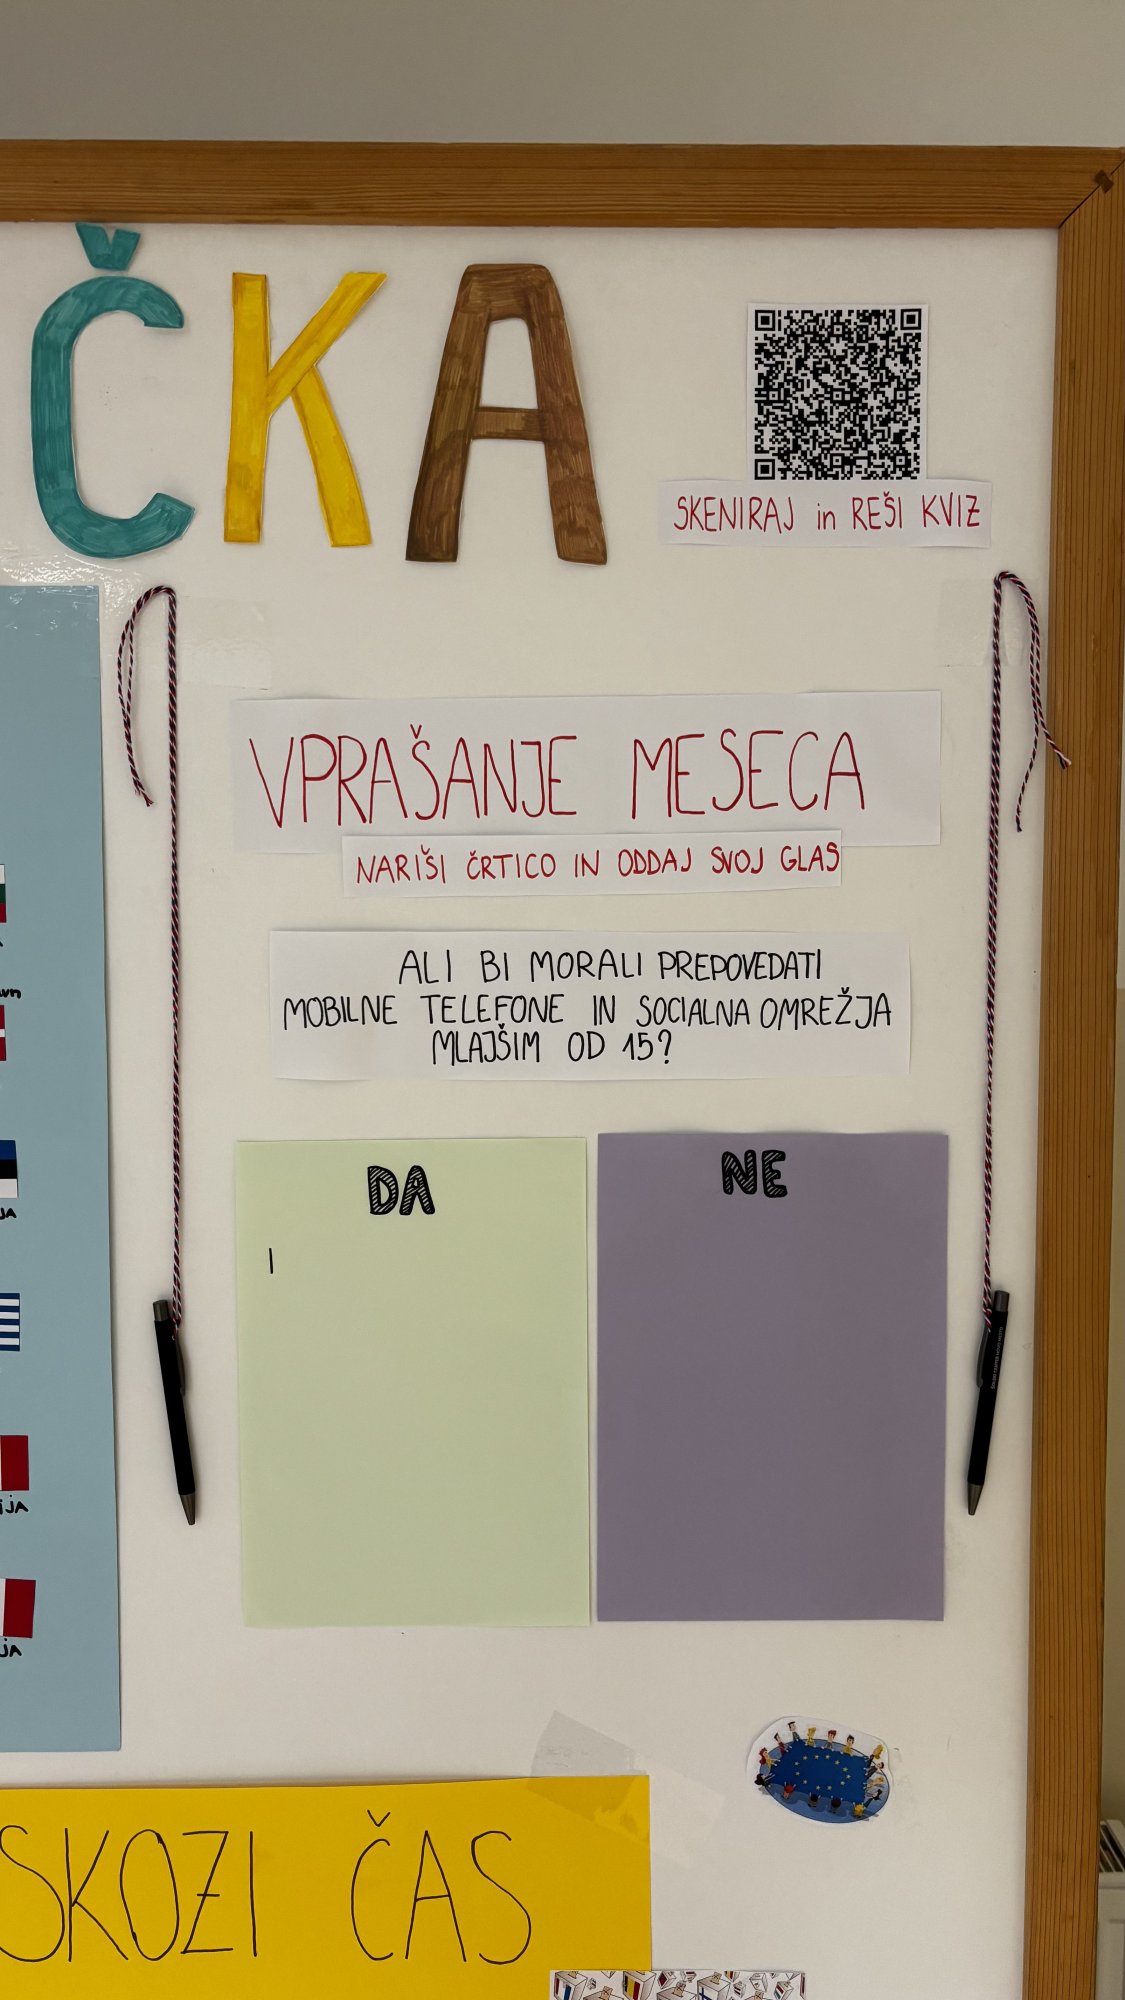 ČKA
SKENIRAJ in REŠI KVIZ
VPRAŠANJE MESECA
NARIŠI ČRTICO IN ODDAJ SVOJ GLAS
ALI BI MORALI PREPOVEDATI
MOBILNE TELEFONE IN SOCIALNA OMREŽJA
MLAJŠIM OD 15?
DA
NE
SKOZI ČAS